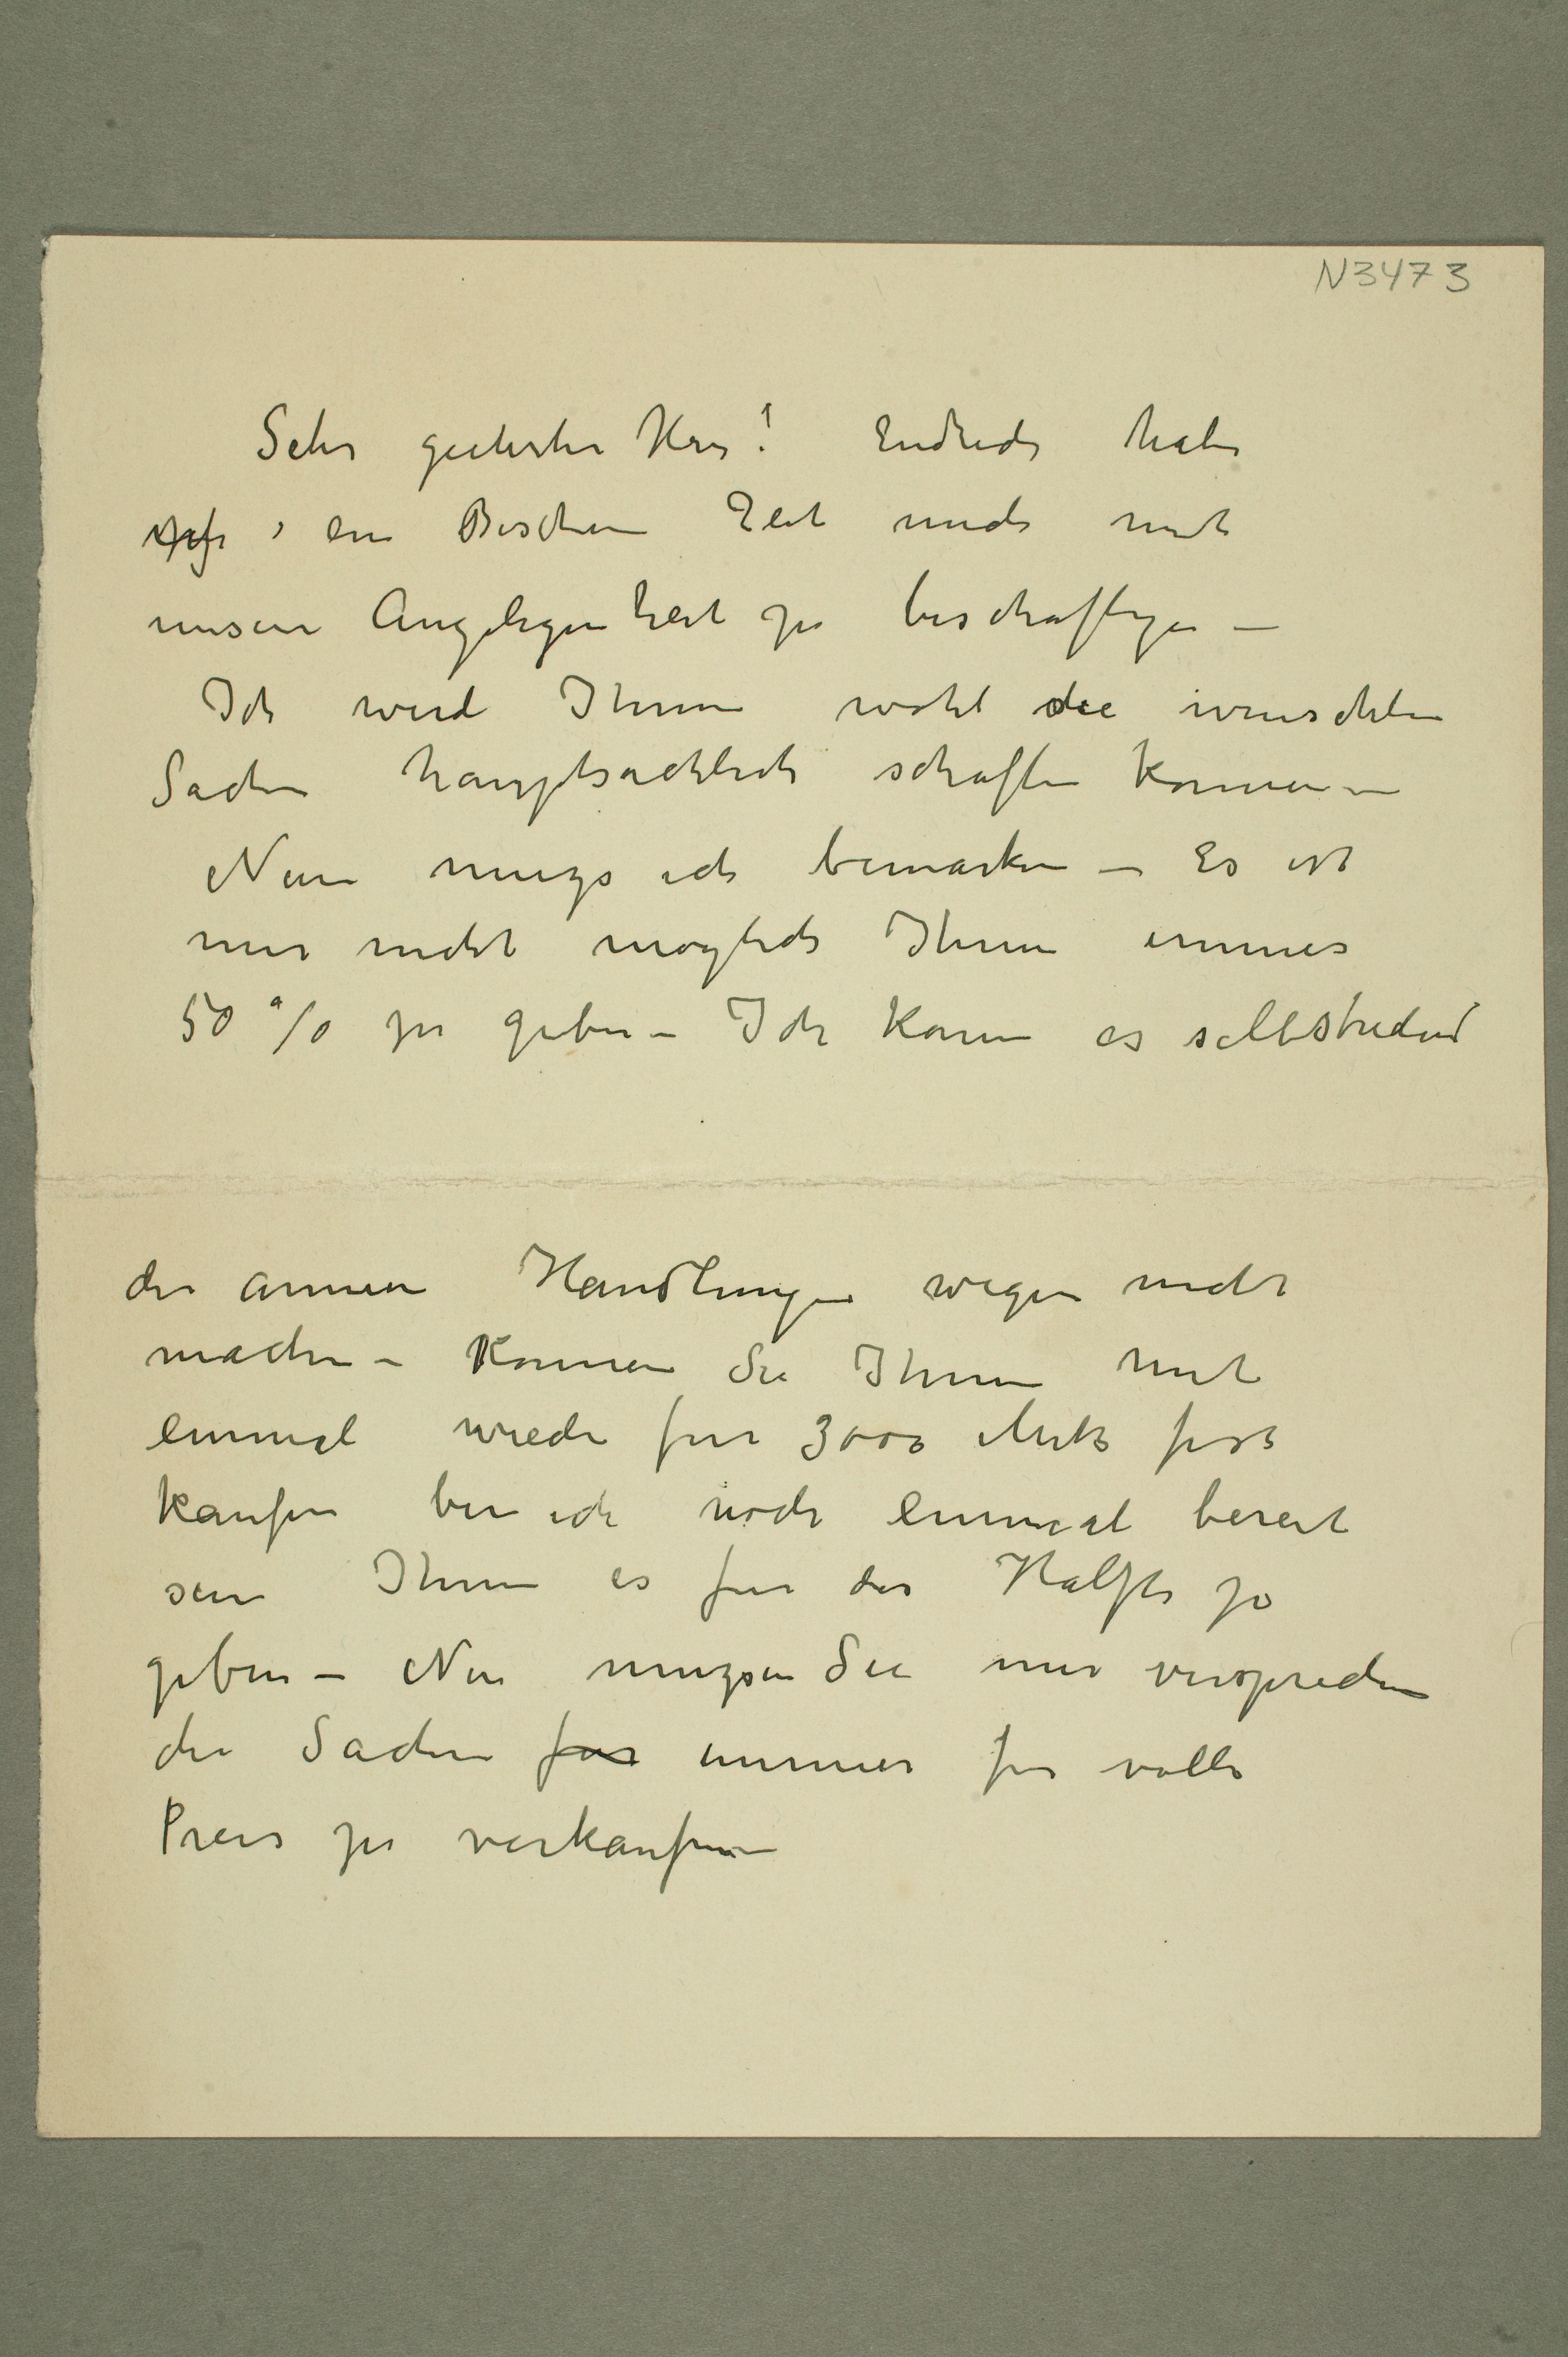 N3473
Sehr geehrter Herr! Endlich habe
ich ein Bischen Zeit mich mit
unserer Angelegenheit zu beschaftigen –
Ich werde Ihnen wohl die wunschten
Sachen hauptsachlich schaffen konnen –
Nun muzs ich bemarken – Es ist
mir nicht moglich Ihnen immer
50 % zu geben – Ich kann es selbstredend
der anneren Handlungen wegen nicht
machen – Konnen Sie Ihnen mit
einmal wieder fur 3000 Mk fest
kaufen bin ich noch einmal bereit
sein Ihnen es fur das Halfte zu
geben – Nun muzsen Sie mir versprechen
die Sachen immer fur volle
Preis zu verkaufen –